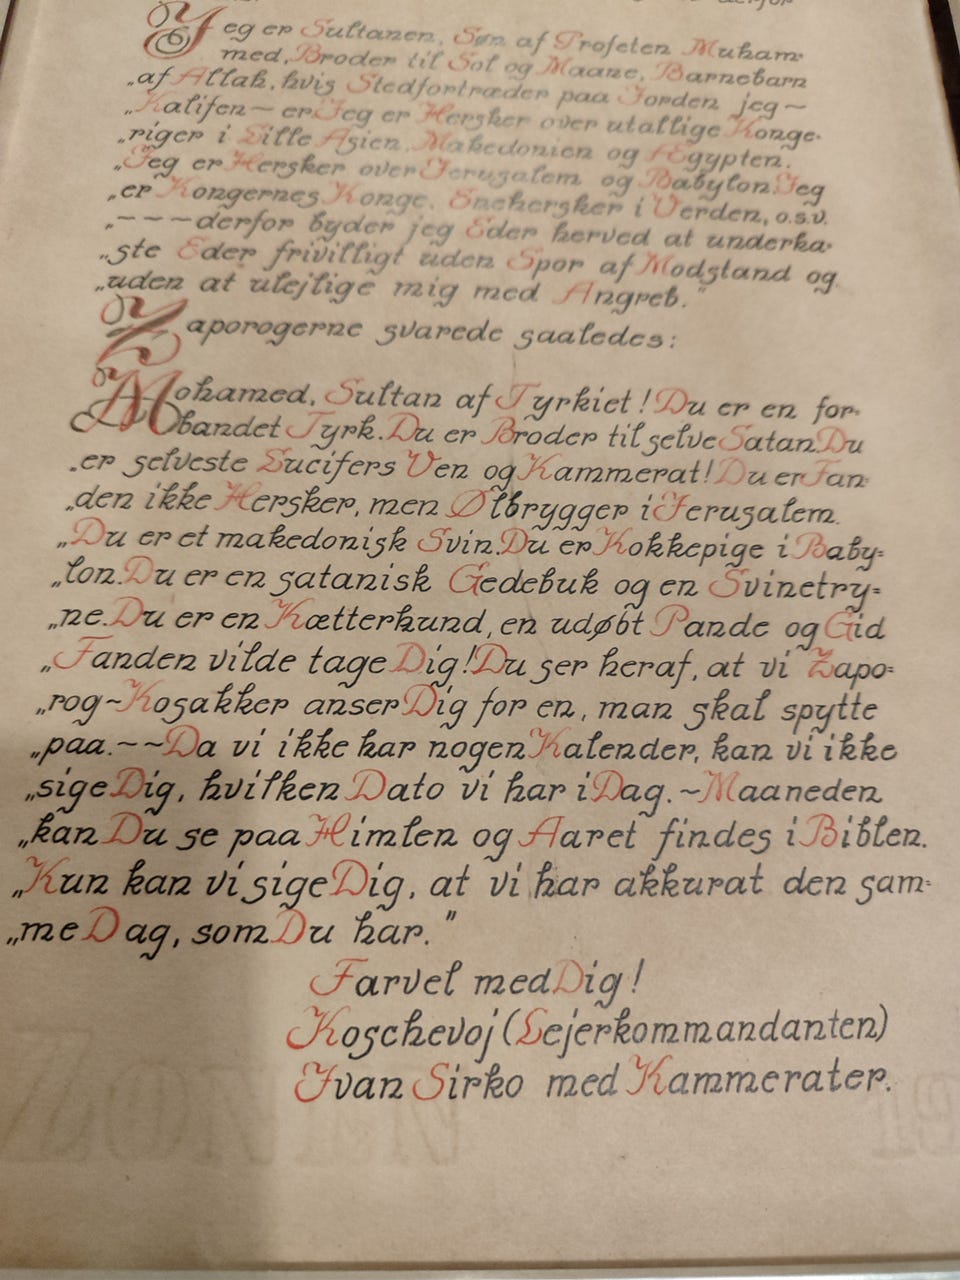 Jeg er Sultanen, Søn af Profeten Muham-
med, Broder til Sol og Maane, Barnebarn
„af Allah, hvis Stedfortræder paa Jorden jeg ~
„Kalifen ~ er. Jeg er Hersker over utallige Konge-
„riger i Lille Asien, Makedonien og Ægypten.
„Jeg er Hersker over Jerusalem og Babylon. Jeg
„er Kongernes Konge, Enehersker i Verden, o.s.v.
„~~~derfor byder jeg Eder herved at underka-
„ste Eder frivilligt uden Spor af Modstand og
„uden at ulejlige mig med Angreb."
Zaporogerne svarede saaledes:
Mohamed, Sultan af Tyrkiet! Du er en for-
bandet Tyrk. Du er Broder til selve Satan. Du
„er selveste Lucifers Ven og Kammerat! Du er Fan-
„den ikke Hersker, men Ølbrygger i Jerusalem.
„Du er et makedonisk Svin. Du er Kokkepige i Baby-
„lon. Du er en satanisk Gedebuk og en Svinetry-
„ne. Du er en Kætterhund, en udøbt Pande og Gid
„Fanden vilde tage Dig! Du ser heraf, at vi Zapo-
„rog-Kosakker anser Dig for en, man skal spytte
„paa.~~Da vi ikke har nogen Kalender, kan vi ikke
„sige Dig, hvilken Dato vi har i Dag. ~ Maaneden
„kan Du se paa Himlen og Aaret findes i Biblen.
„Kun kan vi sige Dig, at vi har akkurat den sam-
„me Dag, som Du har."
Farvel med Dig!
Koschevoj (Lejerkommandanten)
Ivan Sirko med Kammerater.